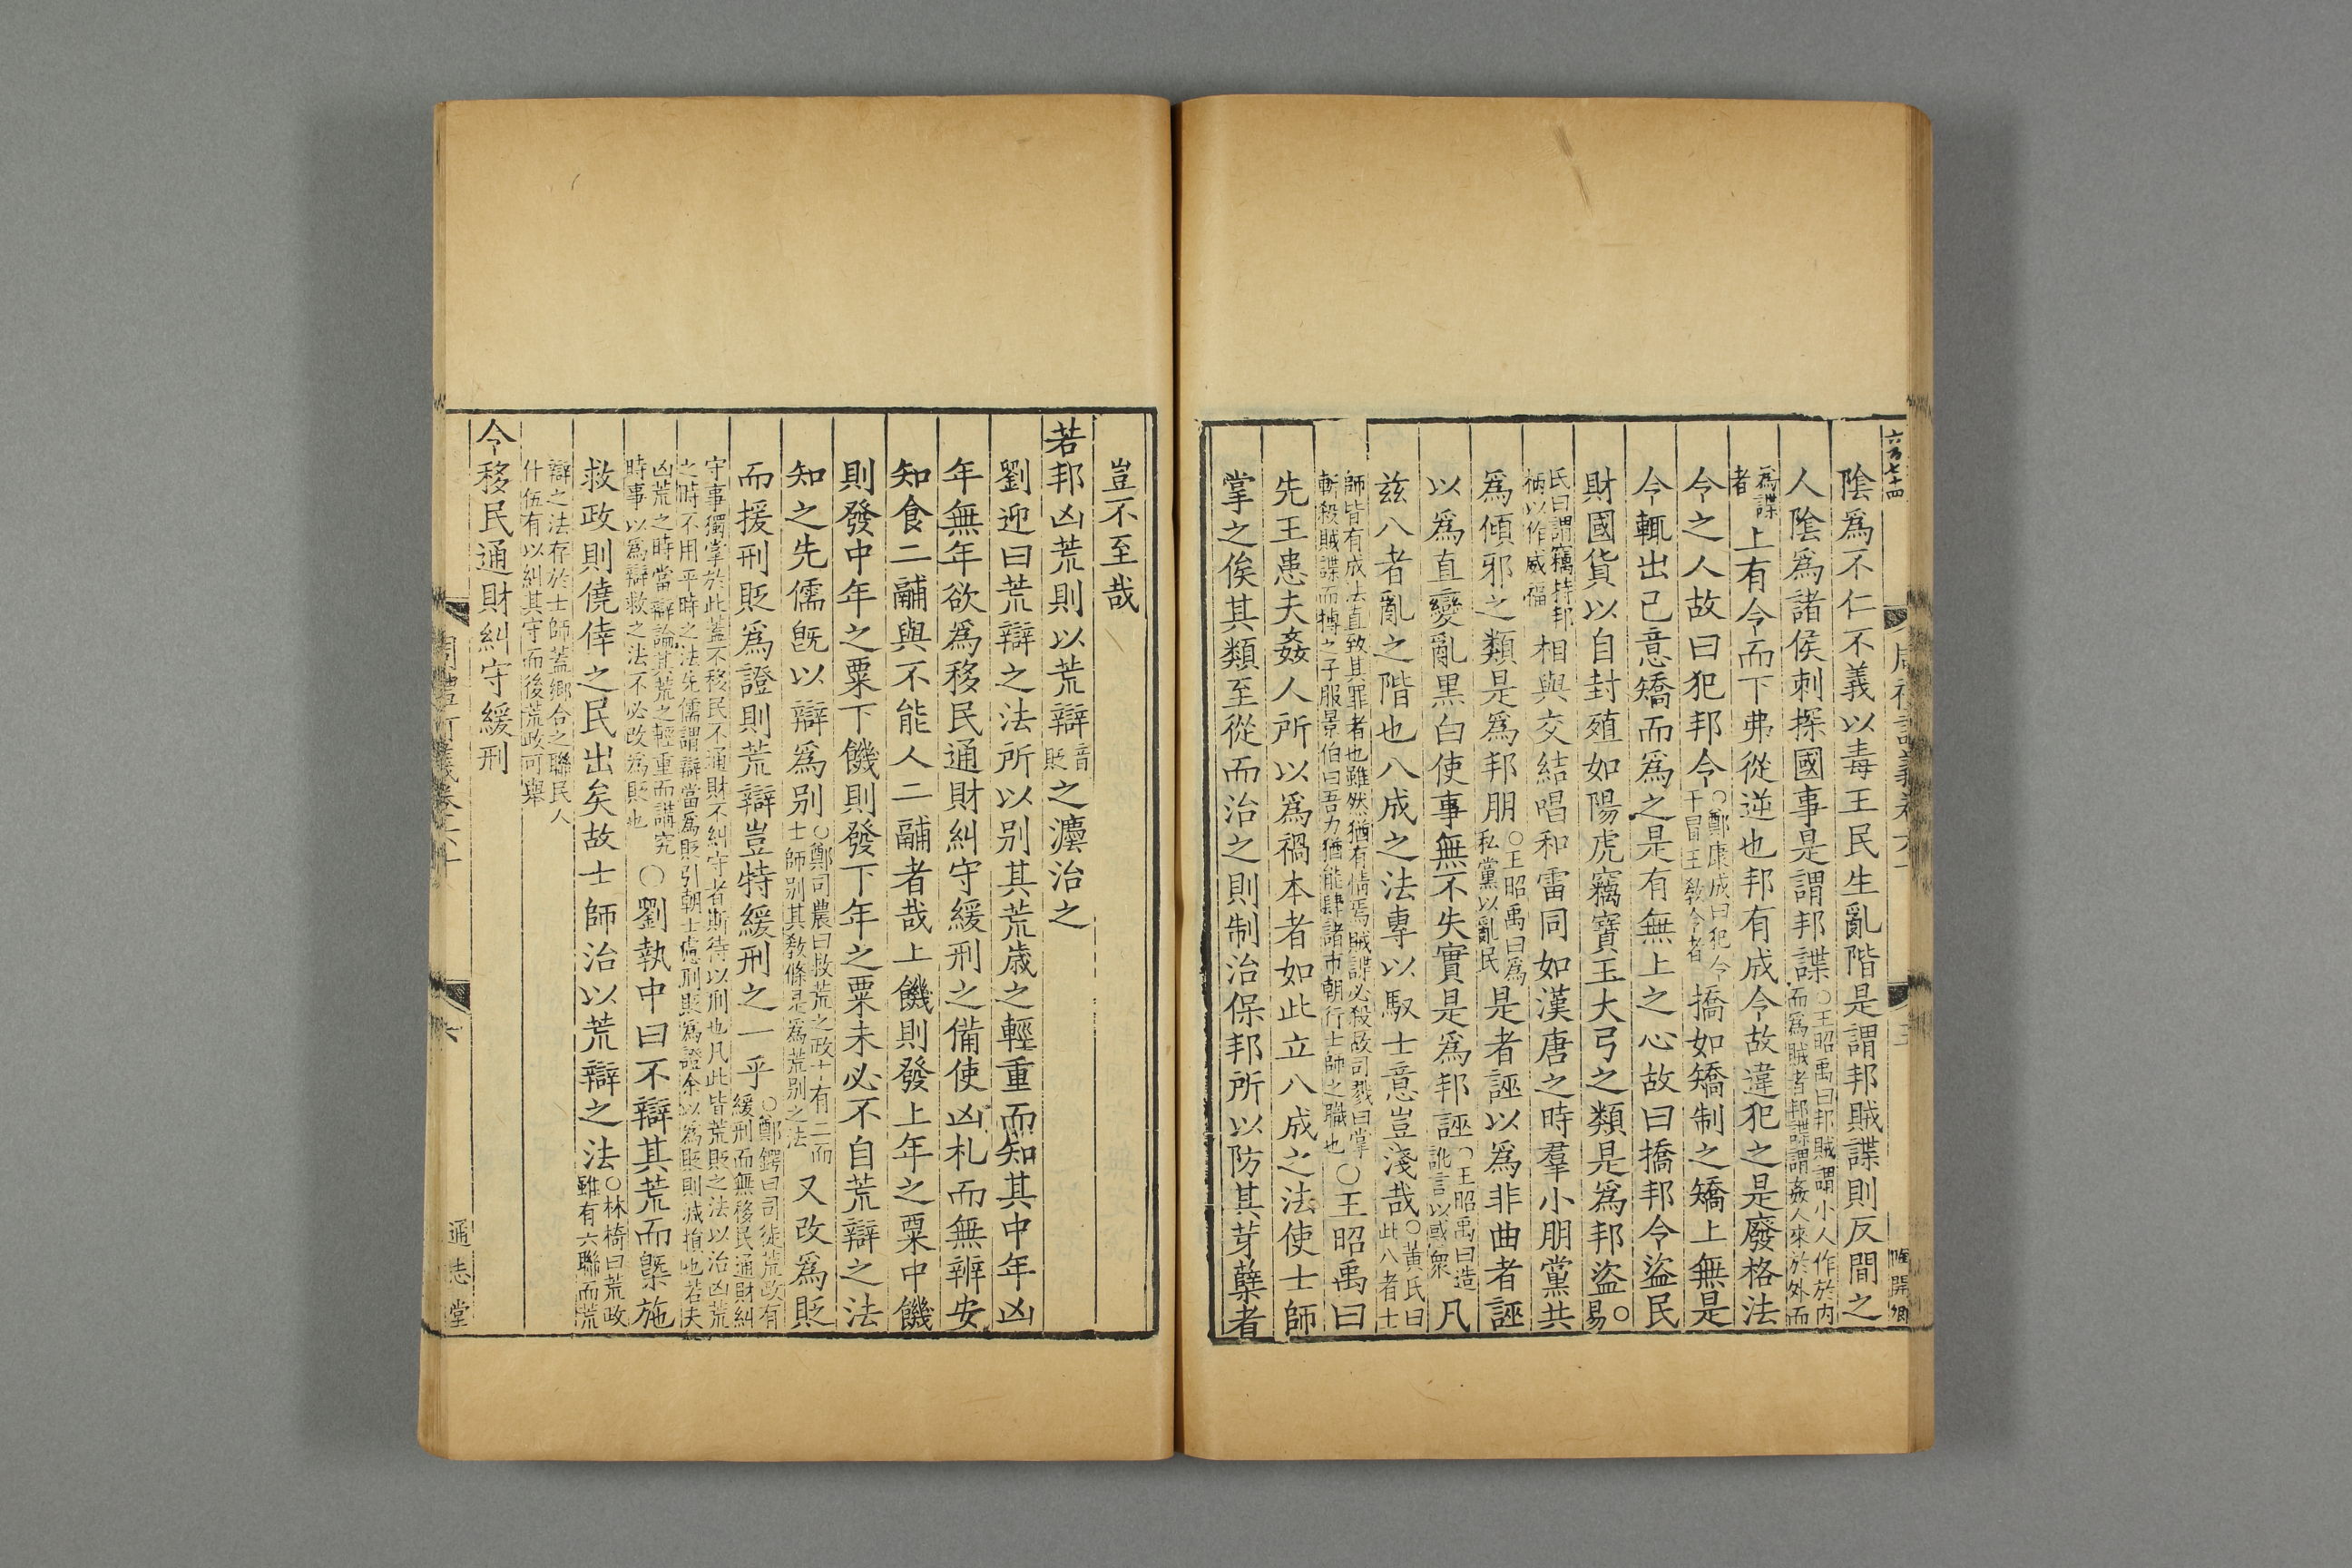 陰爲不仁不義以毒王民生亂階是謂邦賊諜則反間之
人陰爲諸侯刺探國事是謂邦諜○王昭禹曰邦賊謂小人作於内而爲賊者邦諜謂姦人來於外而
爲諜者上有令而下弗從逆也邦有成令故違犯之是廢格法
令之人故曰犯邦令○鄭康成曰犯令干冒王敎令者撟如矯制之矯上無是
令輒出己意矯而爲之是有無上之心故曰撟邦令盜民
財國貨以自封殖如陽虎竊寶玉大弓之類是爲邦盜○易
氏曰謂竊持邦柄以作威福相與交結唱和雷同如漢唐之時羣小朋黨共
爲傾邪之類是爲邦朋○王昭禹曰爲私黨以亂民是者誣以爲非曲者誣
以爲直變亂黑白使事無不失實是爲邦誣○王昭禹曰造訛言以惑衆凡
兹八者亂之階也八成之法專以馭士意豈淺哉○黄氏曰此八者士
師皆有成法直致其罪者也雖然猶有情焉賊諜必殺故司戮曰掌斬殺賊諜而摶之子服景伯曰吾力猶能肆諸市朝行士師之職也○王昭禹曰
先王患夫姦人所以爲禍本者如此立八成之法使士師
掌之俟其類至從而治之則制治保邦所以防其芽蘖者
豈不至哉
若邦凶荒則以荒辯音貶之灋治之
劉迎曰荒辯之法所以别其荒歲之輕重而知其中年凶
年無年欲爲移民通財糾守緩刑之備使凶札而無辨安
知食二鬴與不能人二鬴者哉上饑則發上年之粟中饑
則發中年之粟下饑則發下年之粟未必不自荒辯之法
知之先儒旣以辯爲别○鄭司農曰救荒之政十有二而士師别其敎條是爲荒别之法又改爲貶
而援刑貶爲證則荒辯豈特緩刑之一乎○鄭鍔曰司徒荒政有緩刑而無移民通財糾
守事獨掌於此蓋不移民不通財不糾守者斯待以刑也凡此皆荒貶之法以治凶荒之時不用平時之法先儒謂辯當爲貶引朝士慮刑貶爲證余以爲貶則減損也若夫
凶荒之時當辯論其荒之輕重而講究時事以爲辯救之法不必改爲貶也○劉執中曰不辯其荒而槩施
救政則僥倖之民出矣故士師治以荒辯之法○林椅曰荒政雖有六聯而荒
辯之法存於士師蓋鄉合之聯民人什伍有以糾其守而後荒政可舉
令移民通財糾守緩刑
通志堂